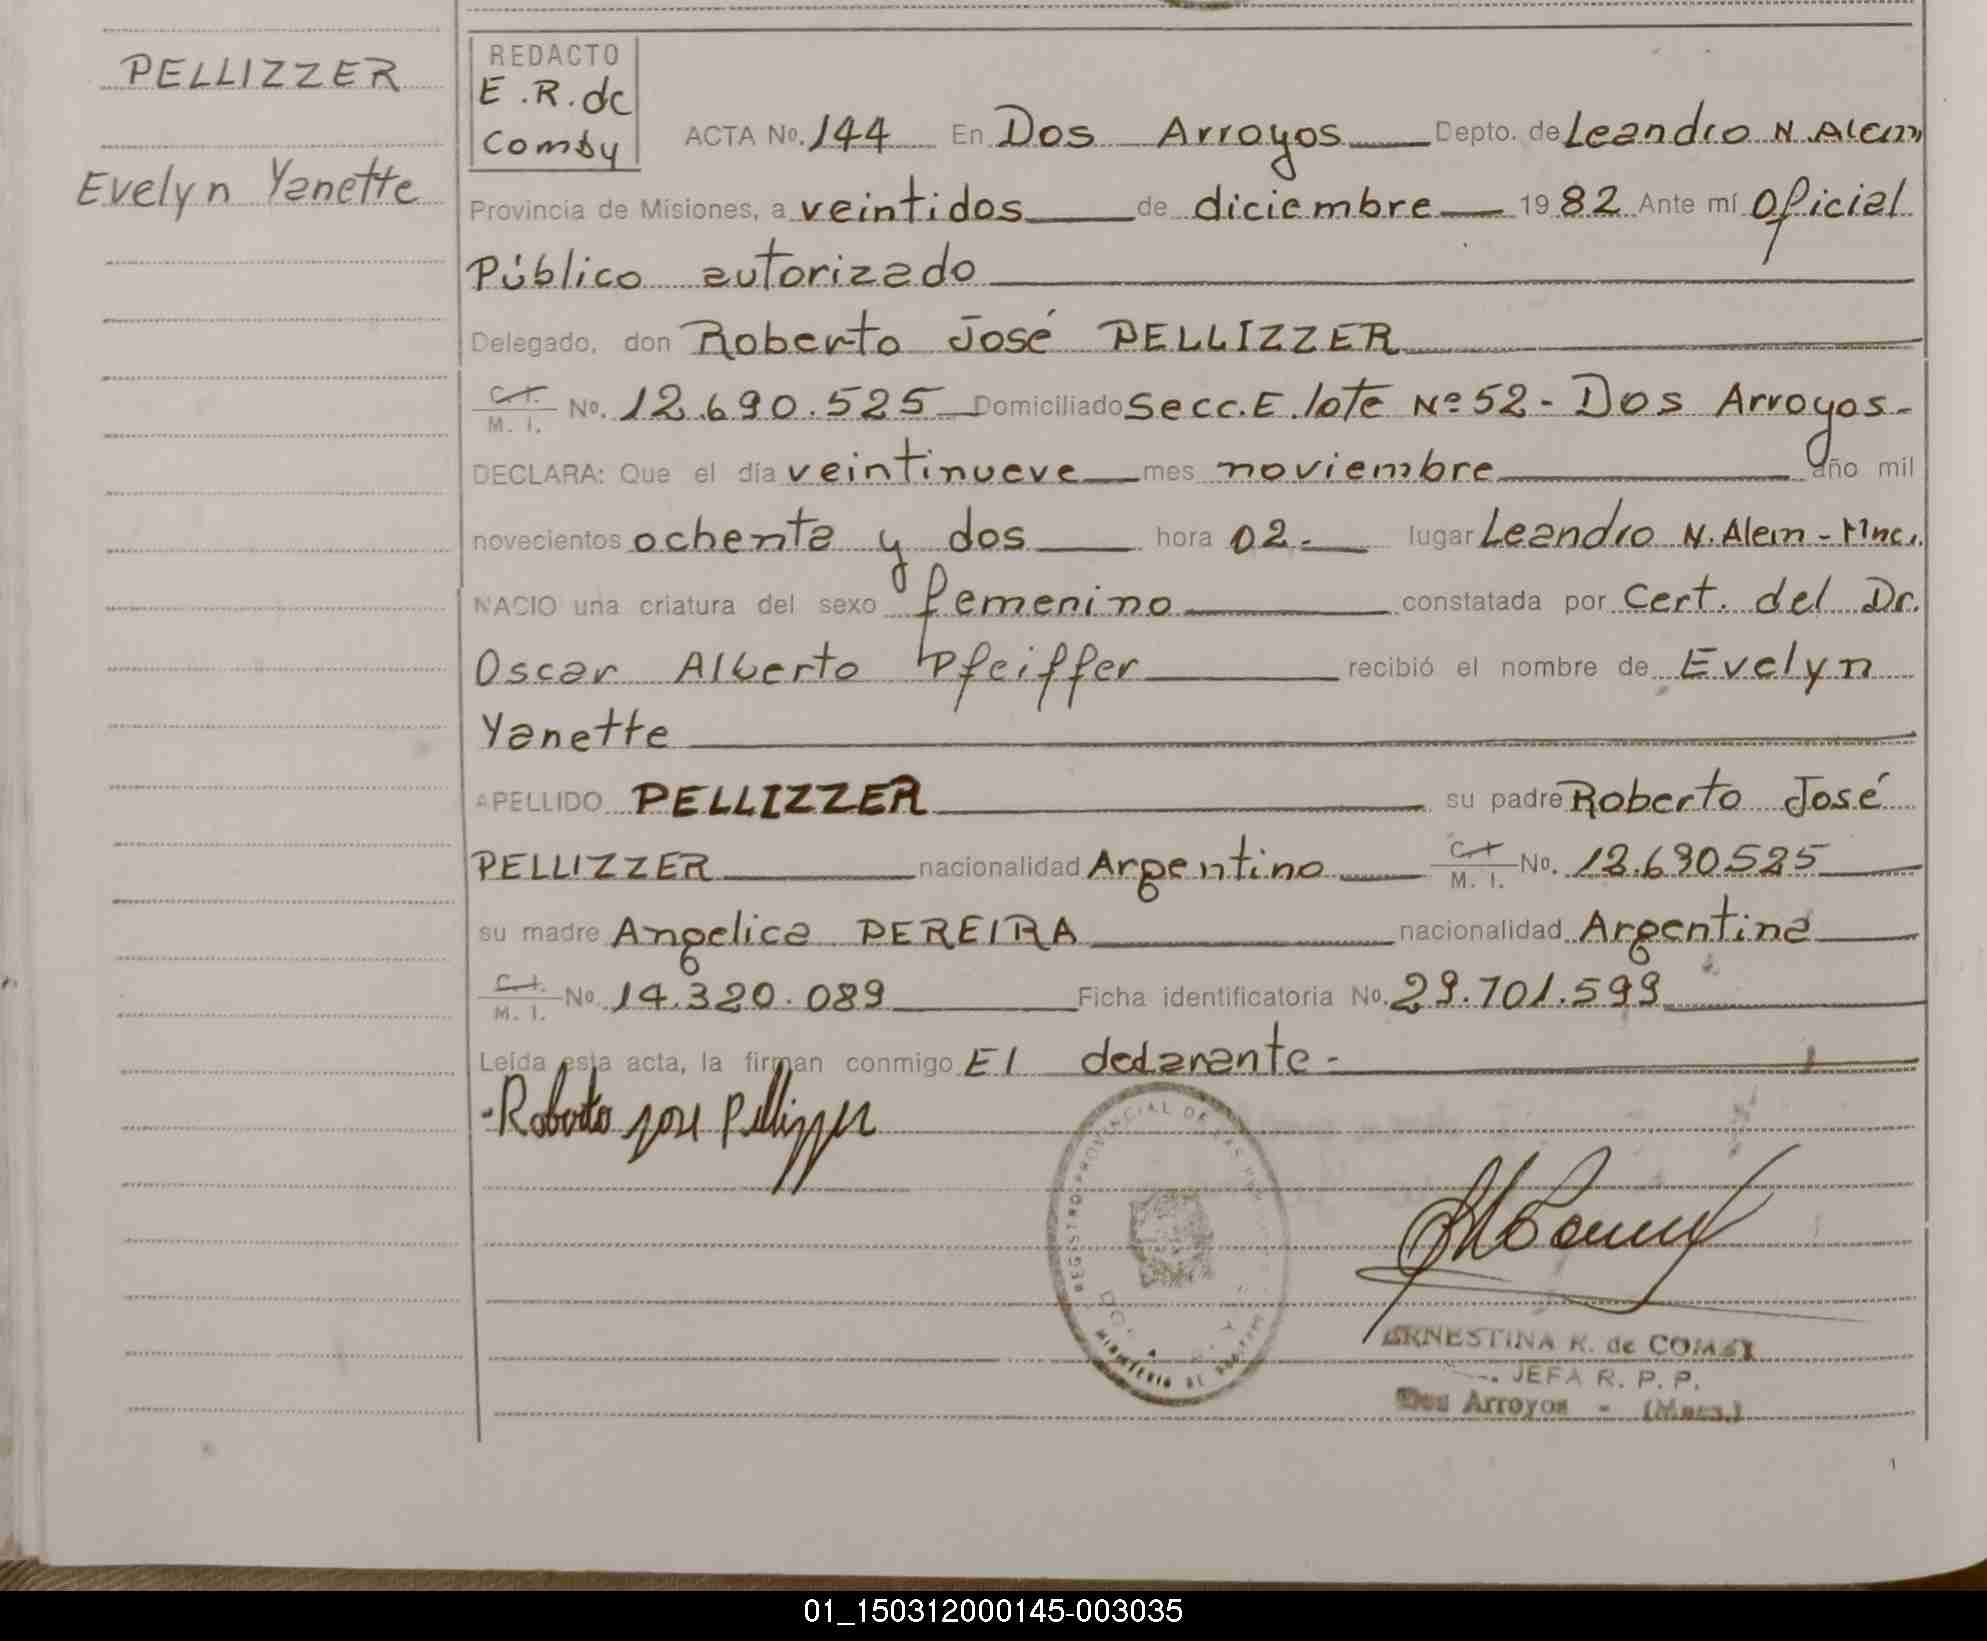 PELLIZZER
Evelyn Yanette
REDACTO
E.R.de
Comby
ACTA No. 144 En Dos Arroyos Depto. de Leandro N. Alem
Provincia de Misiones, a veintidos de diciembre 1982 Ante mí Oficial
Público autorizado
Delegado, don Roberto José PELLIZZER
C.I. M. I. No. 12.690.525 Domiciliado Secc. E. lote Nº 52 - Dos Arroyos -
DECLARA: Que el día veintinueve mes noviembre año mil
novecientos ochenta y dos hora 02.- lugar Leandro N. Alem - Mnes.
NACIO una criatura del sexo femenino constatada por Cert. del Dr.
Oscar Alberto Pfeiffer recibió el nombre de Evelyn
Yanette
APELLIDO PELLIZZER su padre Roberto José
PELLIZZER nacionalidad Argentino C.I. M. I. No. 12.690.525
su madre Angelica PEREIRA nacionalidad Argentina
C.I. M. I. No. 14.320.089 Ficha identificatoria No. 29.701.599
Leída esta acta, la firman conmigo El declarante -
- Roberto jose Pellizzer
REGISTRO PROVINCIAL DE LAS
ERNESTINA R. de COMBY
JEFA R. P. P.
Dos Arroyos - (Mnes.)
01_150312000145-003035